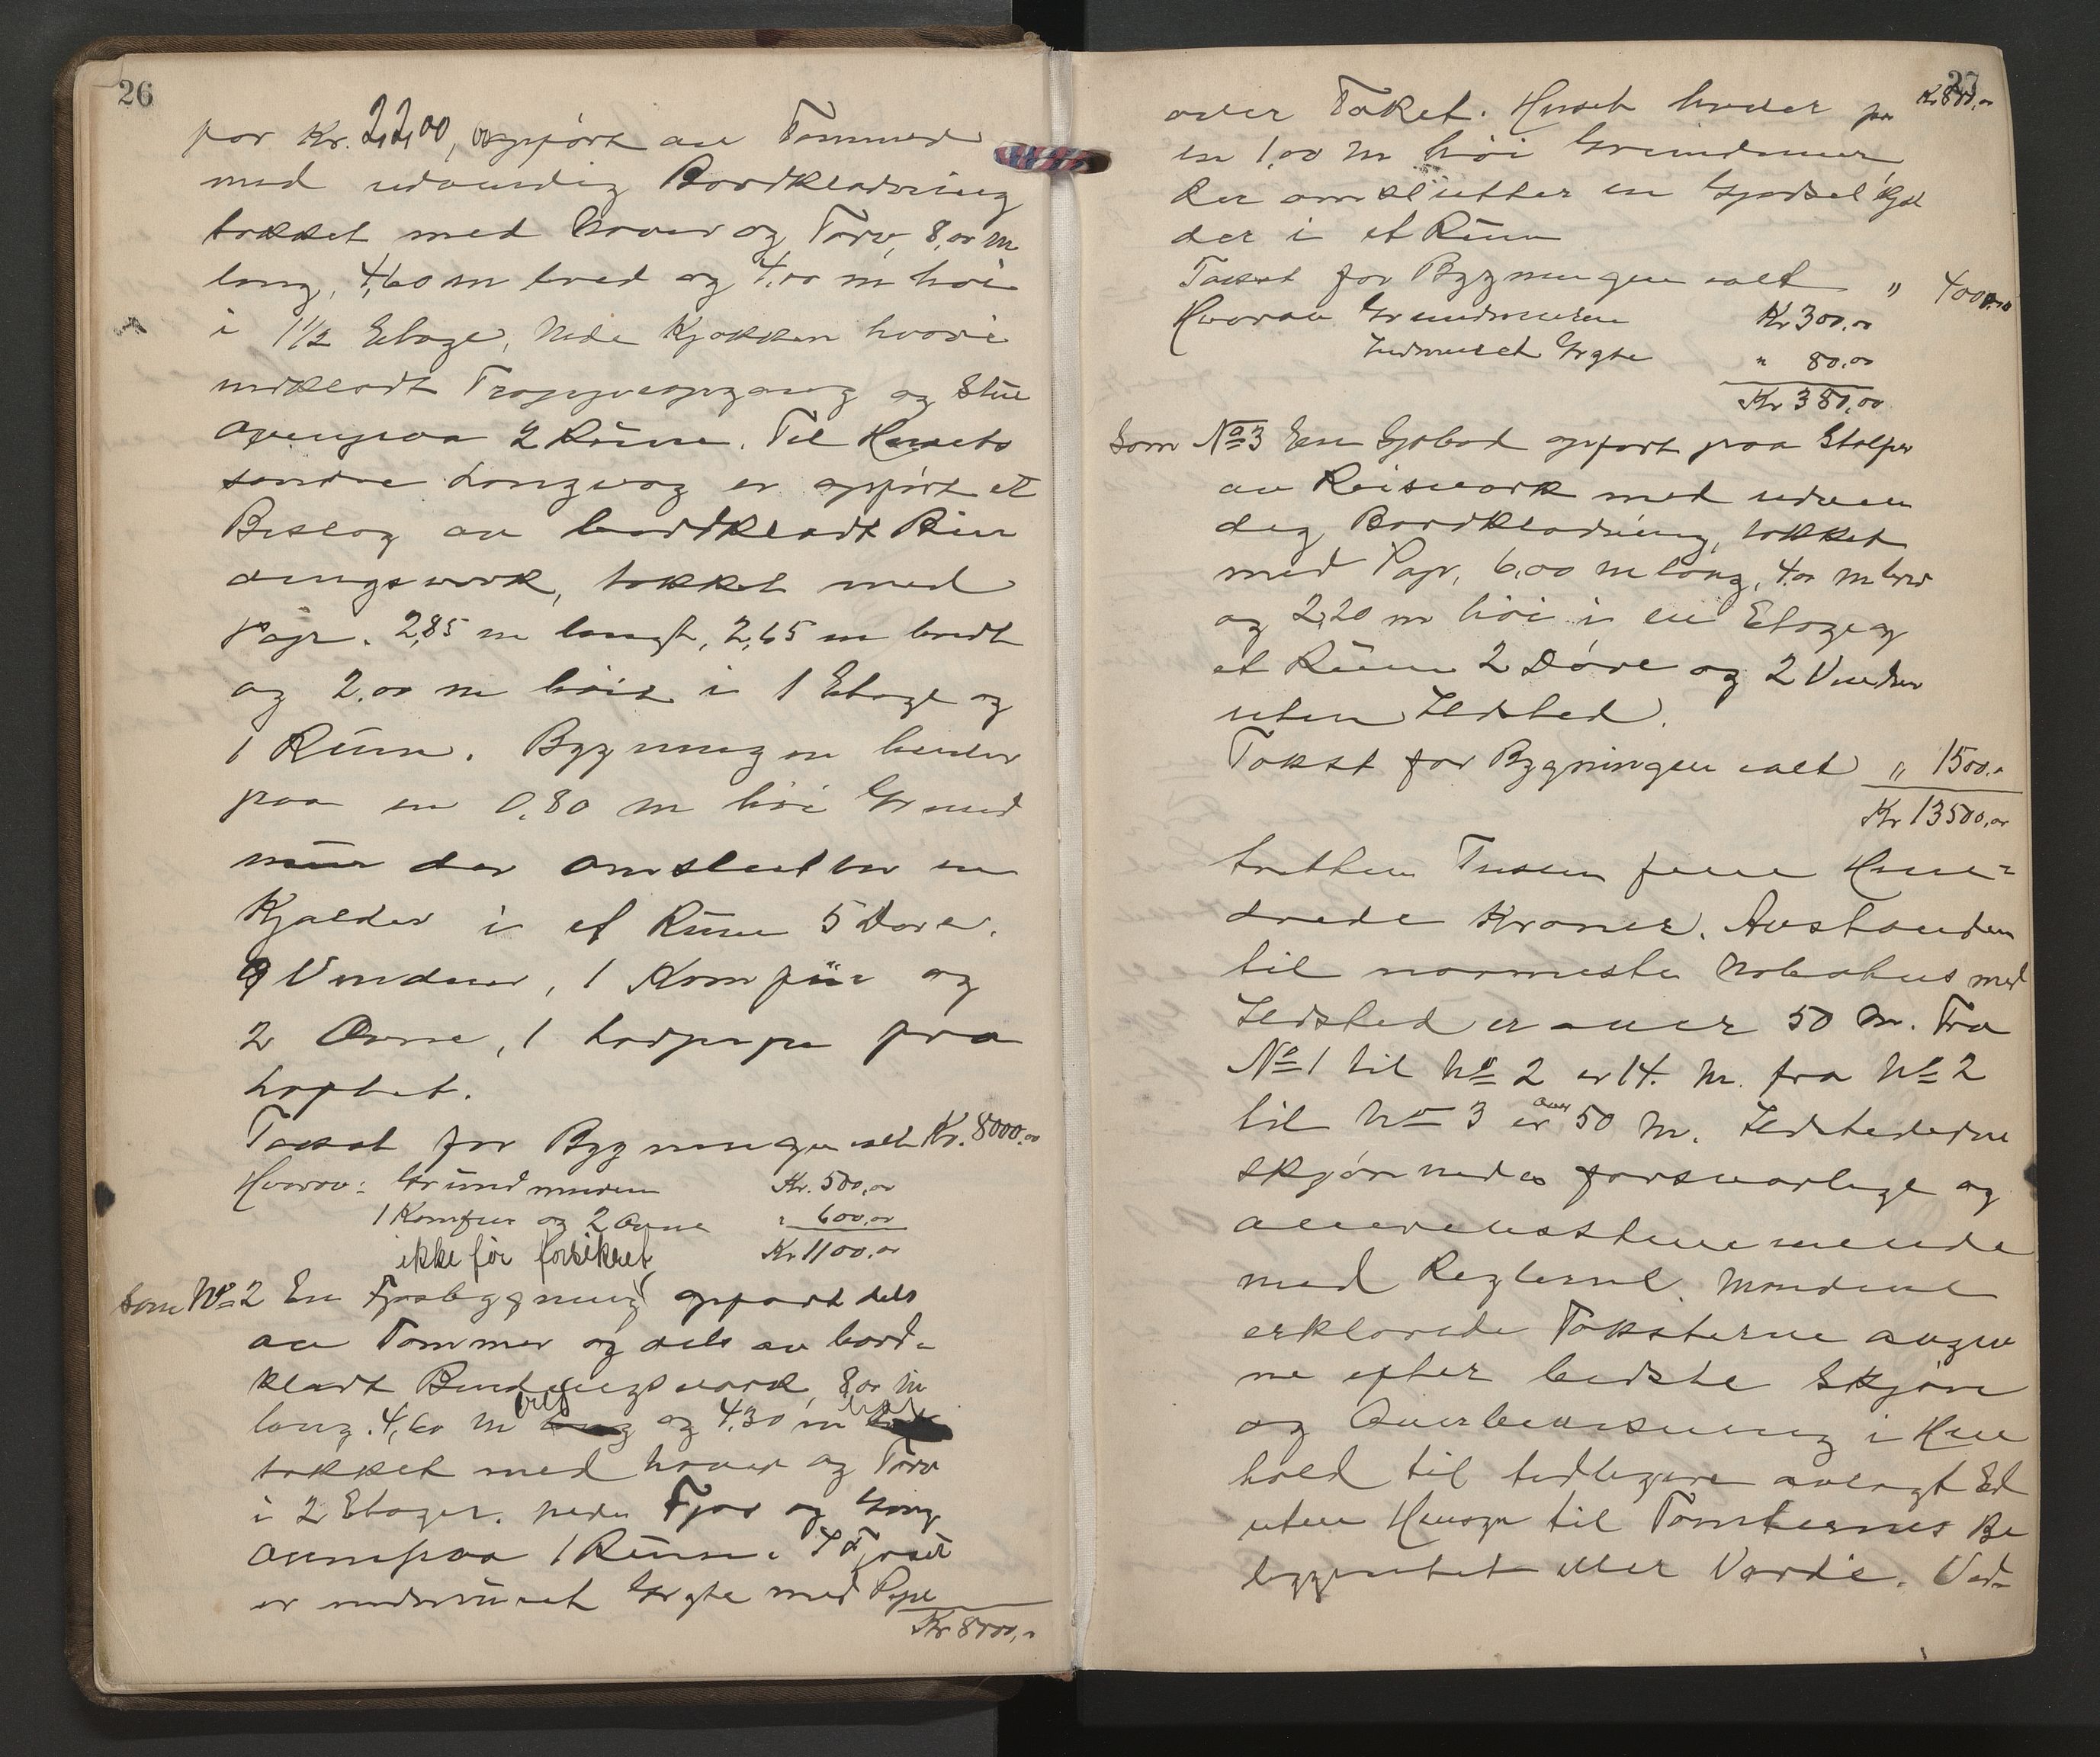 26
for Kr. 2200, opført av Tømmer
med udvendig Bordklædning
tækket med Næver og Torv, 8,00 m
lang, 4,60 m bred og 4,00 m høi
i 1 1/2 Etage, Nede Kjøkken hvori
indklædt Trappeopgang og Stue
Ovenpaa 2 Rum. Til Husets
søndre Langvæg er opført et
Bislag av bordklædt Bin
dingsverk, tækket med
Pap. 2,85 m langt, 2,65 m bredt
og 2,00 m høit i 1 Etage og
1 Rum. Bygningen hviler
paa en 0,80 m høi Grund
mur der omslutter en
Kjælder i et Rum 5 Døre.
9 Vinduer, 1 Komfur og
2 Ovne, 1 Lodpipe fra
Loftet.
Takst for Bygningen ialt Kr. 8000,00
Hvorav: Grundmuren Kr. 500,00
1 Komfur og 2 Ovne " 600,00
ikke før forsikret Kr 1100,00
Som No 2 En Fjøsbygning opført dels
av Tømmer og dels av bord-
klædt Bindingsverk, 8,00 m
lang. 4,60 m bred og 4,30 m høi
tækket med Næver og Torv
i 2 Etager. Nede Fjøs og Gang
Ovenpaa 1 Rum. I Fjøset
er indmuret Gryte med Pipe
Kr 8000,00
27
Kr 8000,00
over Taket. Huset hviler paa
en 1,00 m høi Grundmur
der omslutter en Gjødselkjæl
der i et Rum
Takst for Bygningen ialt " 4000,00
Hvorav Grundmuren Kr 300,00
Indmuret Gryte " 80,00
Kr 380,00
Som No 3 En Sjøbod opført paa Stolper
av Reisverk med udven
dig Bordklædning, tækket
med Pap, 6,00 m lang, 4,00 m bred
og 2,20 m høi i en Etage og
et Rum 2 Døre og 2 Vinduer
uten Ildsted.
Takst for Bygningen ialt " 1500,00
Kr 13500,00
tretten Tusen fem Hun-
drede Kroner. Avstanden
til nærmeste Nabohus med
Ildsted er over 50 m. Fra
No 1 til No 2 er 14. m. fra No 2
til No 3 er over 50 m. Ildstederne
skjønnedes forsvarlige og
overensstemmende
med Reglerne. Mændene
erklærede Taksterne angiv
ne efter bedste Skjøn
og Overbevisning i Hen
hold til tidligere avlagt Ed
uten Hensyn til Tomternes Be
liggenhet eller Værdi. Ved-